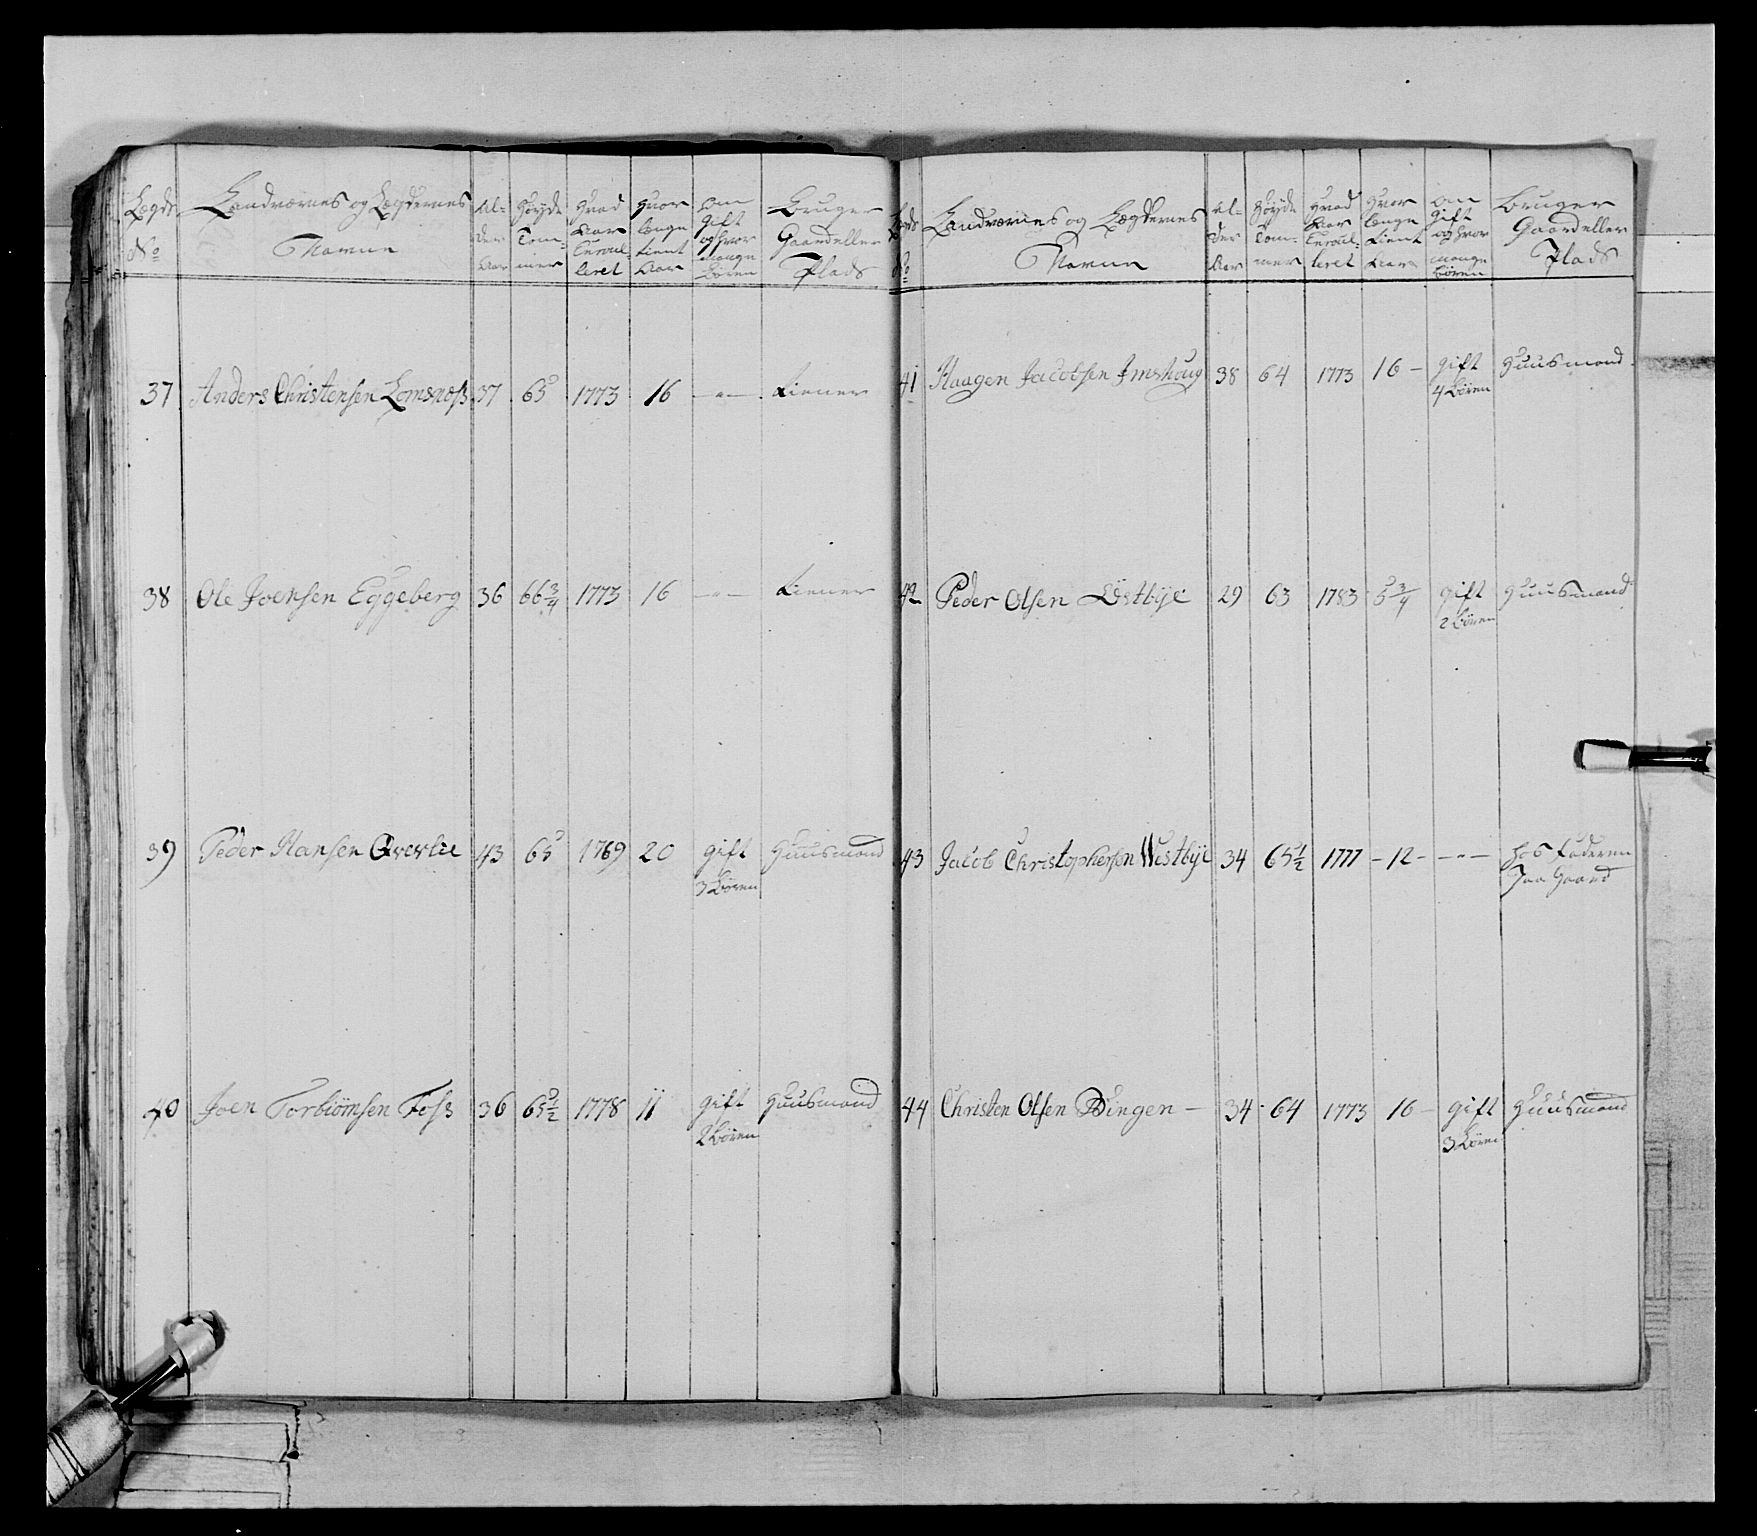 Lægds No
Landværnes og Lægdernes Navne
Alder Aar
Høyde Tommer
Hvad Aar Enroulleret
Hvor længe tient Aar
Om Gift og hvor mange Børen
Bruger Gaard eller Plads
37 Anders Christensen Lomsnøss 37 65 1773 16 -"- Tiener
38 Ole Joensen Eggeberg 36 66 3/4 1773 16 -"- Tiener
39 Peder Hansen Øverlie 43 65 1769 20 gift Huusmand
3 Børen
40 Joen Torbiörnsen Foss 36 65 1/2 1778 11 gift Huusmand
2 Børen
Lægds No
Landværnes og Lægdernes Navne
Alder Aar
Høyde Tommer
Hvad Aar Enroulleret
Hvor længe tient Aar
Om Gift og hvor mange Børen
Bruger Gaard eller Plads
41 Haagen Jacobsen Imshoug 38 64 1773 16 - gift Huusmand
4 Børen
42 Peder Olsen Østbÿe 29 63 1783 5 3/4 gift Huusmand
2 Børen
43 Jacob Christophersen Westbÿe 34 65 1/2 1777 - 12 - -"- hos Faderen
Paa Gaard
44 Christen Olsen Dingen - 34 64 1773 16 - gift Huusmand
3 Børen